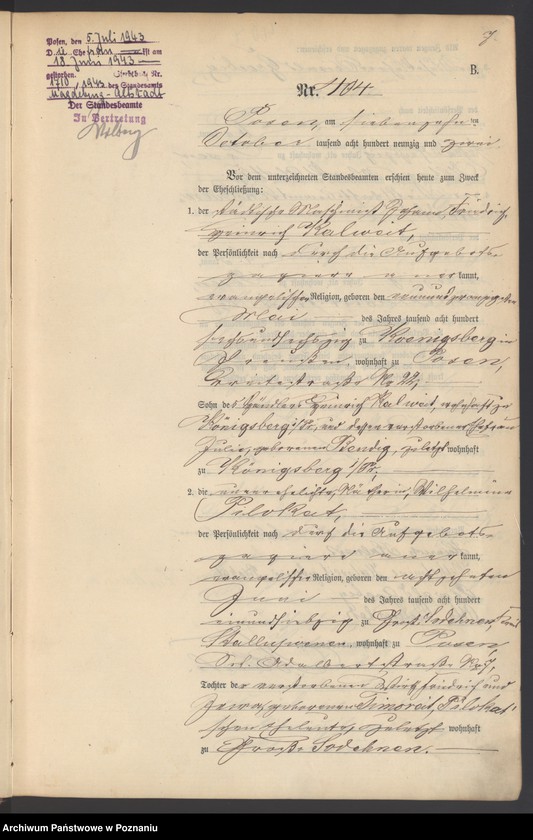 Posen, den 5. Juli 1943
D ist am
18. Juni 1943
gestorben. Sterbebuch Nr.
1710 / 1943 des Standesamts
Magdeburg-Altstadt
Der Standesbeamte
In Vertretung
7
B.
Nr. 1104
Posen, am siebenzehnten
October tausend acht hundert neunzig und zwei
Vor dem unterzeichneten Standesbeamten erschien heute zum Zweck
der Eheschließung:
1. der städtische Maschinist Johann Friedrich
Heinrich Kalweit,
der Persönlichkeit nach durch die Aufgebots-
papiere anerkannt,
evangelischer Religion, geboren den neunundzwanzigsten
Mai des Jahres tausend acht hundert
sechsundsechszig zu Koenigsberg in
Preussen, wohnhaft zu Posen,
Breitestraße No 22,
Sohn des Händlers Heinrich Kalweit, wohnhaft zu
Königsberg i/Pr, und dessen verstorbener Ehefrau
Julie, geborenen Bendig, zuletzt wohnhaft
zu Königsberg i/Pr,
2. die unverehelichte, Näherin, Wilhelmine
Pilokat,
der Persönlichkeit nach durch die Aufgebots-
papiere anerkannt,
evangelischer Religion, geboren den achtzehnten
Juni des Jahres tausend acht hundert
einundsiebzig zu Groß Sodehnen, Kreis
Stallupoenen, wohnhaft zu Posen,
Sct. Adalbertstraße No
Tochter der verstorbenen Wirth Friedrich und
geborenen Simoreit, Pilokat'
schen Eheleute, zuletzt wohnhaft
zu Groß Sodehnen.
Archiwum Państwowe w Poznaniu